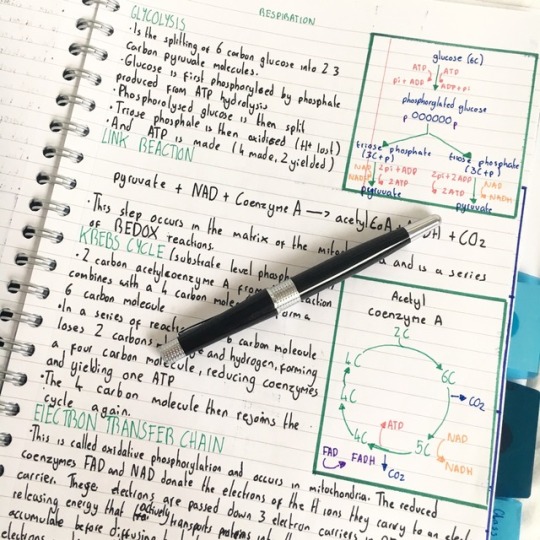 RESPIRATION
GLYCOLYSIS
• Is the splitting of 6 carbon glucose into 2 3
carbon pyruvate molecules.
• Glucose is first phosphorylated by phosphate
produced from ATP hydrolysis
• Phosphorolysed glucose is then split
• Triose phosphate is then oxidised (H+ lost)
• And ATP is made (4 made, 2 yielded)
LINK REACTION
pyruvate + NAD + Coenzyme A → acetyl CoA + + CO2
• This step occurs in the matrix of the and is a series
of REDOX reactions.
KREBS CYCLE (substrate level
• 2 carbon acetylcoenzyme A from reaction
combines with a 4 carbon
6 carbon molecule
• In a series of 6 carbon molecule
loses 2 carbons and hydrogen, forming
a four carbon molecule, reducing coenzymes
and yielding one ATP
• The 4 carbon molecule then rejoins the
cycle again.
ELECTRON TRANSFER CHAIN
• This is called oxidative phosphorylation and occurs in mitochondria. The reduced
coenzymes FAD and NAD donate the electrons of the H ions they carry to an
carrier. These electrons are passed down 3 electron carriers
releasing energy that actively transports
accumulate before
glucose (6C)
ATP ATP
pi + ADP ADP + pi
phosphorylated glucose
P OOOOOO P
triose phosphate triose phosphate
(3C+P) (3C+P)
NAD 2pi + 2ADP 2pi + 2ADP NAD
2ATP 2ATP NADH
pyruvate pyruvate
Acetyl
coenzyme A
2C
4C 6C
CO2
4C
ATP
4C 5C NAD
FAD FADH NADH
CO2